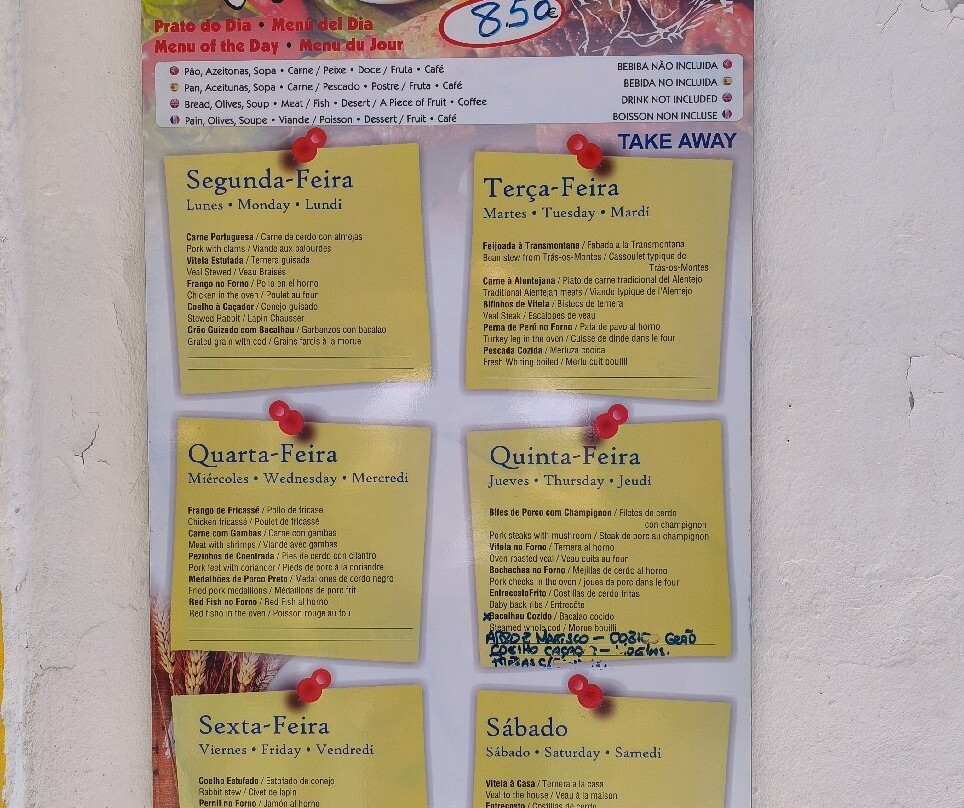 8.50€
Prato do Dia • Menú del Dia
Menu of the Day • Menu du Jour
Pão, Azeitonas, Sopa • Carne / Peixe • Doce / Fruta • Café
BEBIBA NÃO INCLUIDA
Pan, Aceitunas, Sopa • Carne / Pescado • Postre / Fruta • Café
BEBIDA NO INCLUIDA
Bread, Olives, Soup • Meat / Fish • Desert / A Piece of Fruit • Coffee
DRINK NOT INCLUDED
Pain, Olives, Soupe • Viande / Poisson • Dessert / Fruit • Café
BOISSON NON INCLUSE
TAKE AWAY
Segunda-Feira
Lunes • Monday • Lundi
Carne Portuguesa / Carne de cerdo con almejas
Pork with clams / Viande aux palourdes
Vitela Estufada / Ternera guisada
Veal Stewed / Veau Braisés
Frango no Forno / Pollo en el horno
Chicken in the oven / Poulet au four
Coelho à Caçador / Conejo guisado
Stewed Rabbit / Lapin Chausser
Grão Guizado com Bacalhau / Garbanzos con bacalao
Grated grain with cod / Grains farcis à la morue
Terça-Feira
Martes • Tuesday • Mardi
Feijoada à Transmontana / Fabada a la Transmontana
Bean stew from Trás-os-Montes / Cassoulet typique de
Trás-os-Montes
Carne à Alentejana / Plato de carne tradicional del Alentejo
Traditional Alentejan meats / Viande typique de l'Alentejo
Bifinhos de Vitela / Bistecs de ternera
Veal Steak / Escalopes de veau
Perna de Perú no Forno / Pata de pavo al horno
Turkey leg in the oven / Cuisse de dinde dans le four
Pescada Cozida / Merluza cocida
Fresh Whiting boiled / Merlu cuit bouilli
Quarta-Feira
Miércoles • Wednesday • Mercredi
Frango de Fricassé / Pollo de fricase
Chicken fricassé / Poulet de fricassé
Carne com Gambas / Carne con gambas
Meat with shrimps / Viande avec gambas
Pezinhos de Coentrada / Pies de cerdo con cilantro
Pork feet with coriander / Pieds de porc à la coriandre
Medalhões de Porco Preto / Medallones de cerdo negro
Fried pork medallions / Médaillons de porc frit
Red Fish no Forno / Red Fish al horno
Red fisho in the oven / Poisson rouge au four
Quinta-Feira
Jueves • Thursday • Jeudi
Bifes de Porco com Champignon / Filetes de cerdo
con champignon
Pork steaks with mushroom / Steak de porc au champignon
Vitela no Forno / Ternera al horno
Oven roasted veal / Veau cuits au four
Bochechas no Forno / Mejillas de cerdo al horno
Pork cheeks in the oven / joues de porc dans le four
EntrecostoFrito / Costillas de cerdo fritas
Baby back ribs / Entrecôte
x Bacalhau Cozido / Bacalao cocido
Steamed whole cod / Morue bouilli
ARROZ MARISCO — COZIC GRÃO
COELHO
Sexta-Feira
Viernes • Friday • Vendredi
Coelho Estufado / Estofado de conejo
Rabbit stew / Civet de lapin
Pernil no Forno / Jamón al horno
Sábado
Sábado • Saturday • Samedi
Vitela à Casa / Ternera a la casa
Veal to the house / Veau à la maison
Entrecosto / Costillas de cerdo